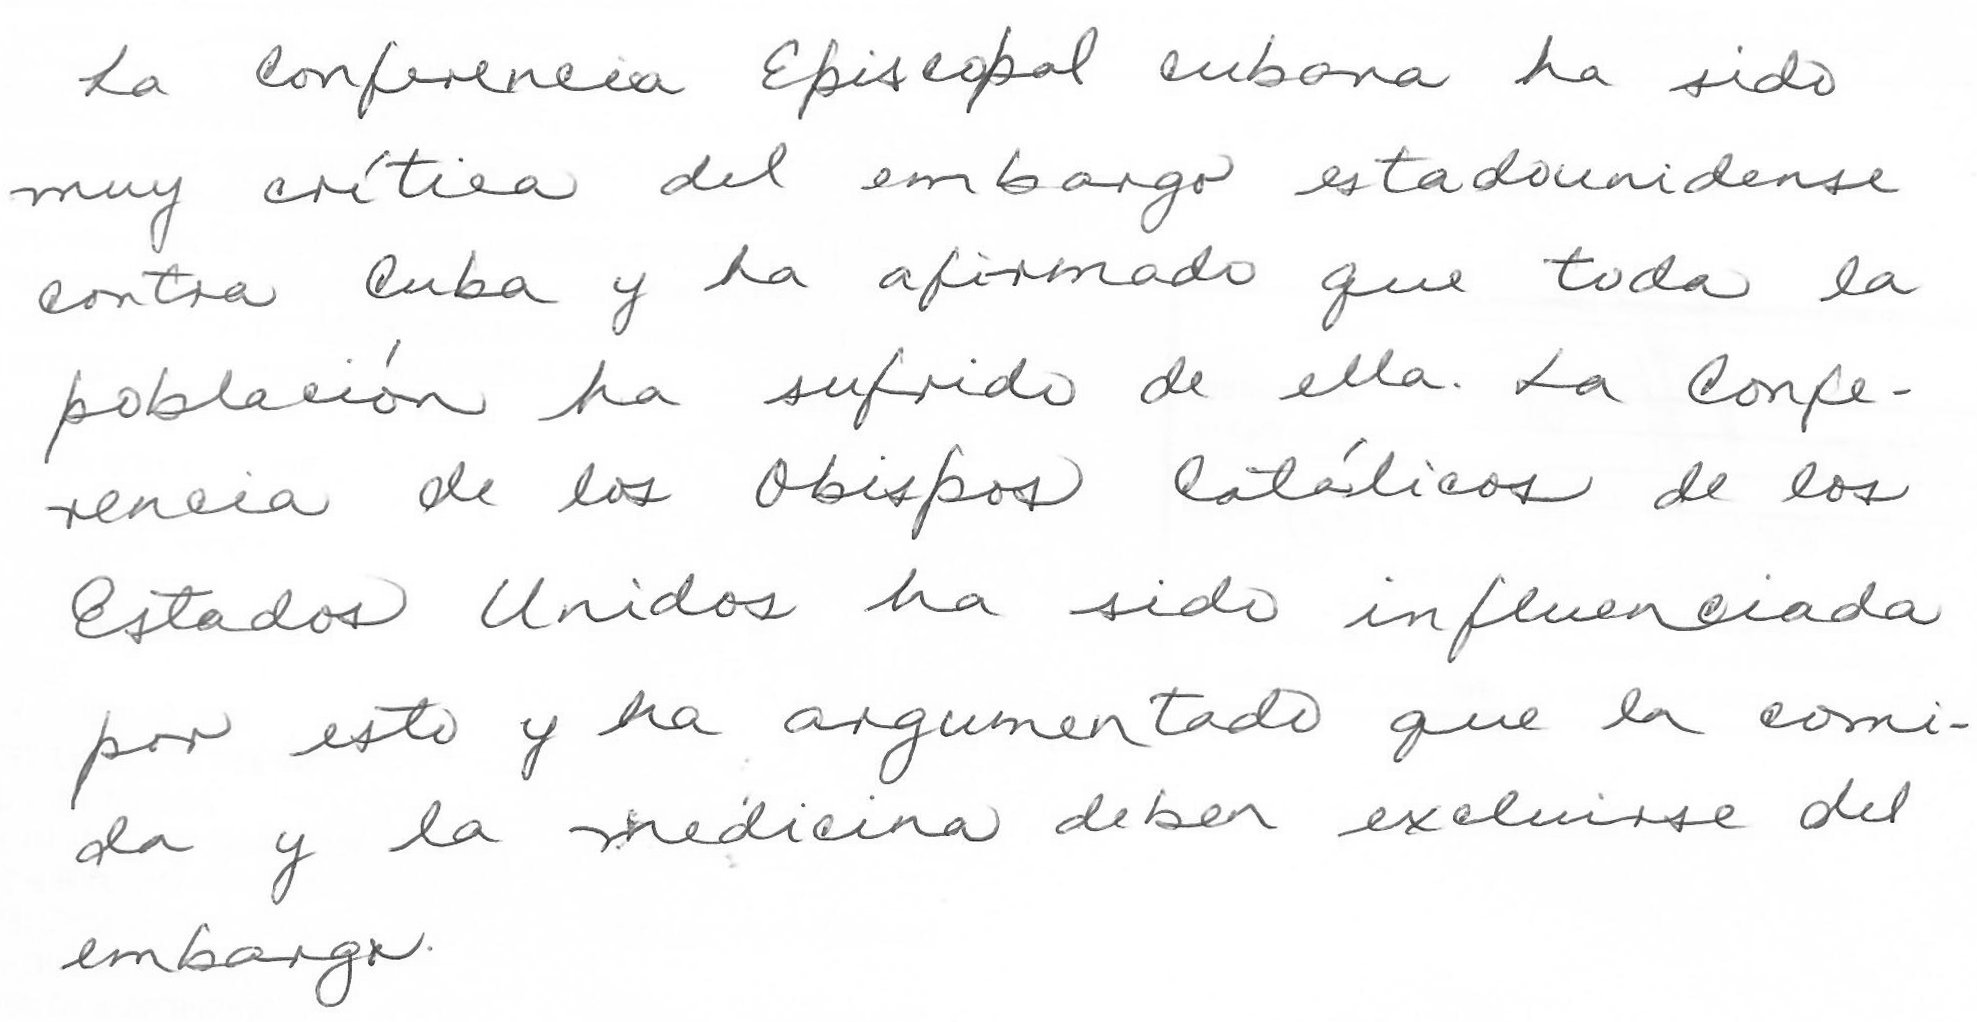 La Conferencia Episcopal cubana ha sido
muy crítica del embargo estadounidense
contra Cuba y ha afirmado que toda la
población ha sufrido de ella. La Confe-
rencia de los Obispos Católicos de los
Estados Unidos ha sido influenciada
por esto y ha argumentado que la comi-
da y la medicina deben excluirse del
embargo.